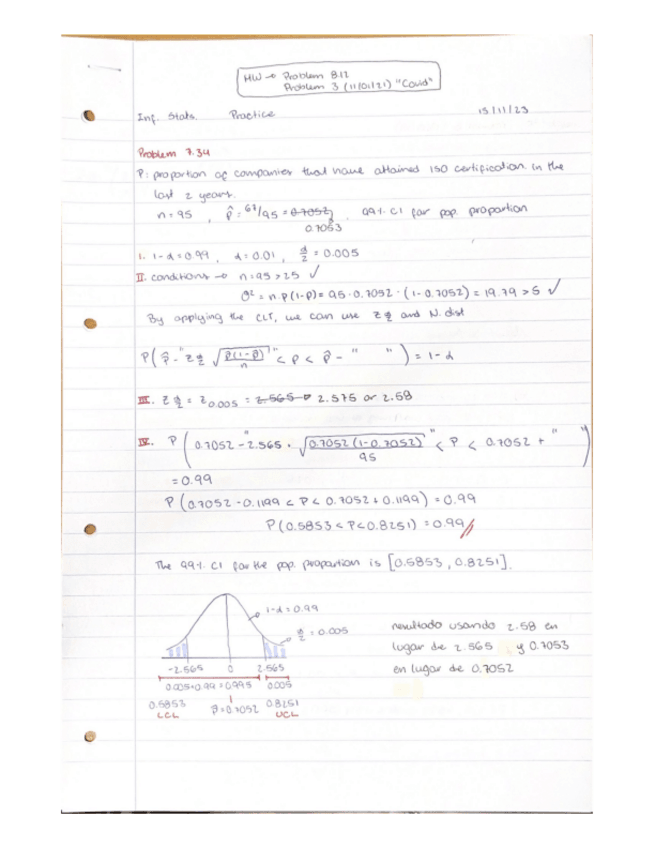 HW → Problem 8.12
Problem 3 (11/01/21) "Covid"
Inf. Stats. Practice 15/11/23
Problem 7.34
P: proportion of companies that have attained ISO certification in the
last 2 years.
n = 95 , p̂ = 67/95 = 0.7052 , 99% CI for pop. proportion
0.7053
I. 1-α = 0.99 , α = 0.01 , α/2 = 0.005
II. conditions → n = 95 > 25 ✓
σ² = n·p(1-p) = 95 · 0.7052 · (1-0.7052) = 19.79 > 5 ✓
By applying the CLT, we can use Z α/2 and N. dist
P(p̂ - "Z α/2 √(p̂(1-p̂)/n)" < P < p̂ - " ") = 1-α
III. Z α/2 = Z 0.005 = 2.565 → 2.575 or 2.58
IV. P(0.7052 - "2.565 · √(0.7052(1-0.7052)/95)" < P < 0.7052 + " ")
= 0.99
P(0.7052 - 0.1199 < P < 0.7052 + 0.1199) = 0.99
P(0.5853 < P < 0.8251) = 0.99
The 99% CI for the pop. proportion is [0.5853, 0.8251].
1-α = 0.99
α/2 = 0.005
-2.565 0 2.565
0.005+0.99 = 0.995 0.005
0.5853 p̂ = 0.7052 0.8251
LCL UCL
resultado usando 2.58 en
lugar de 2.565 y 0.7053
en lugar de 0.7052